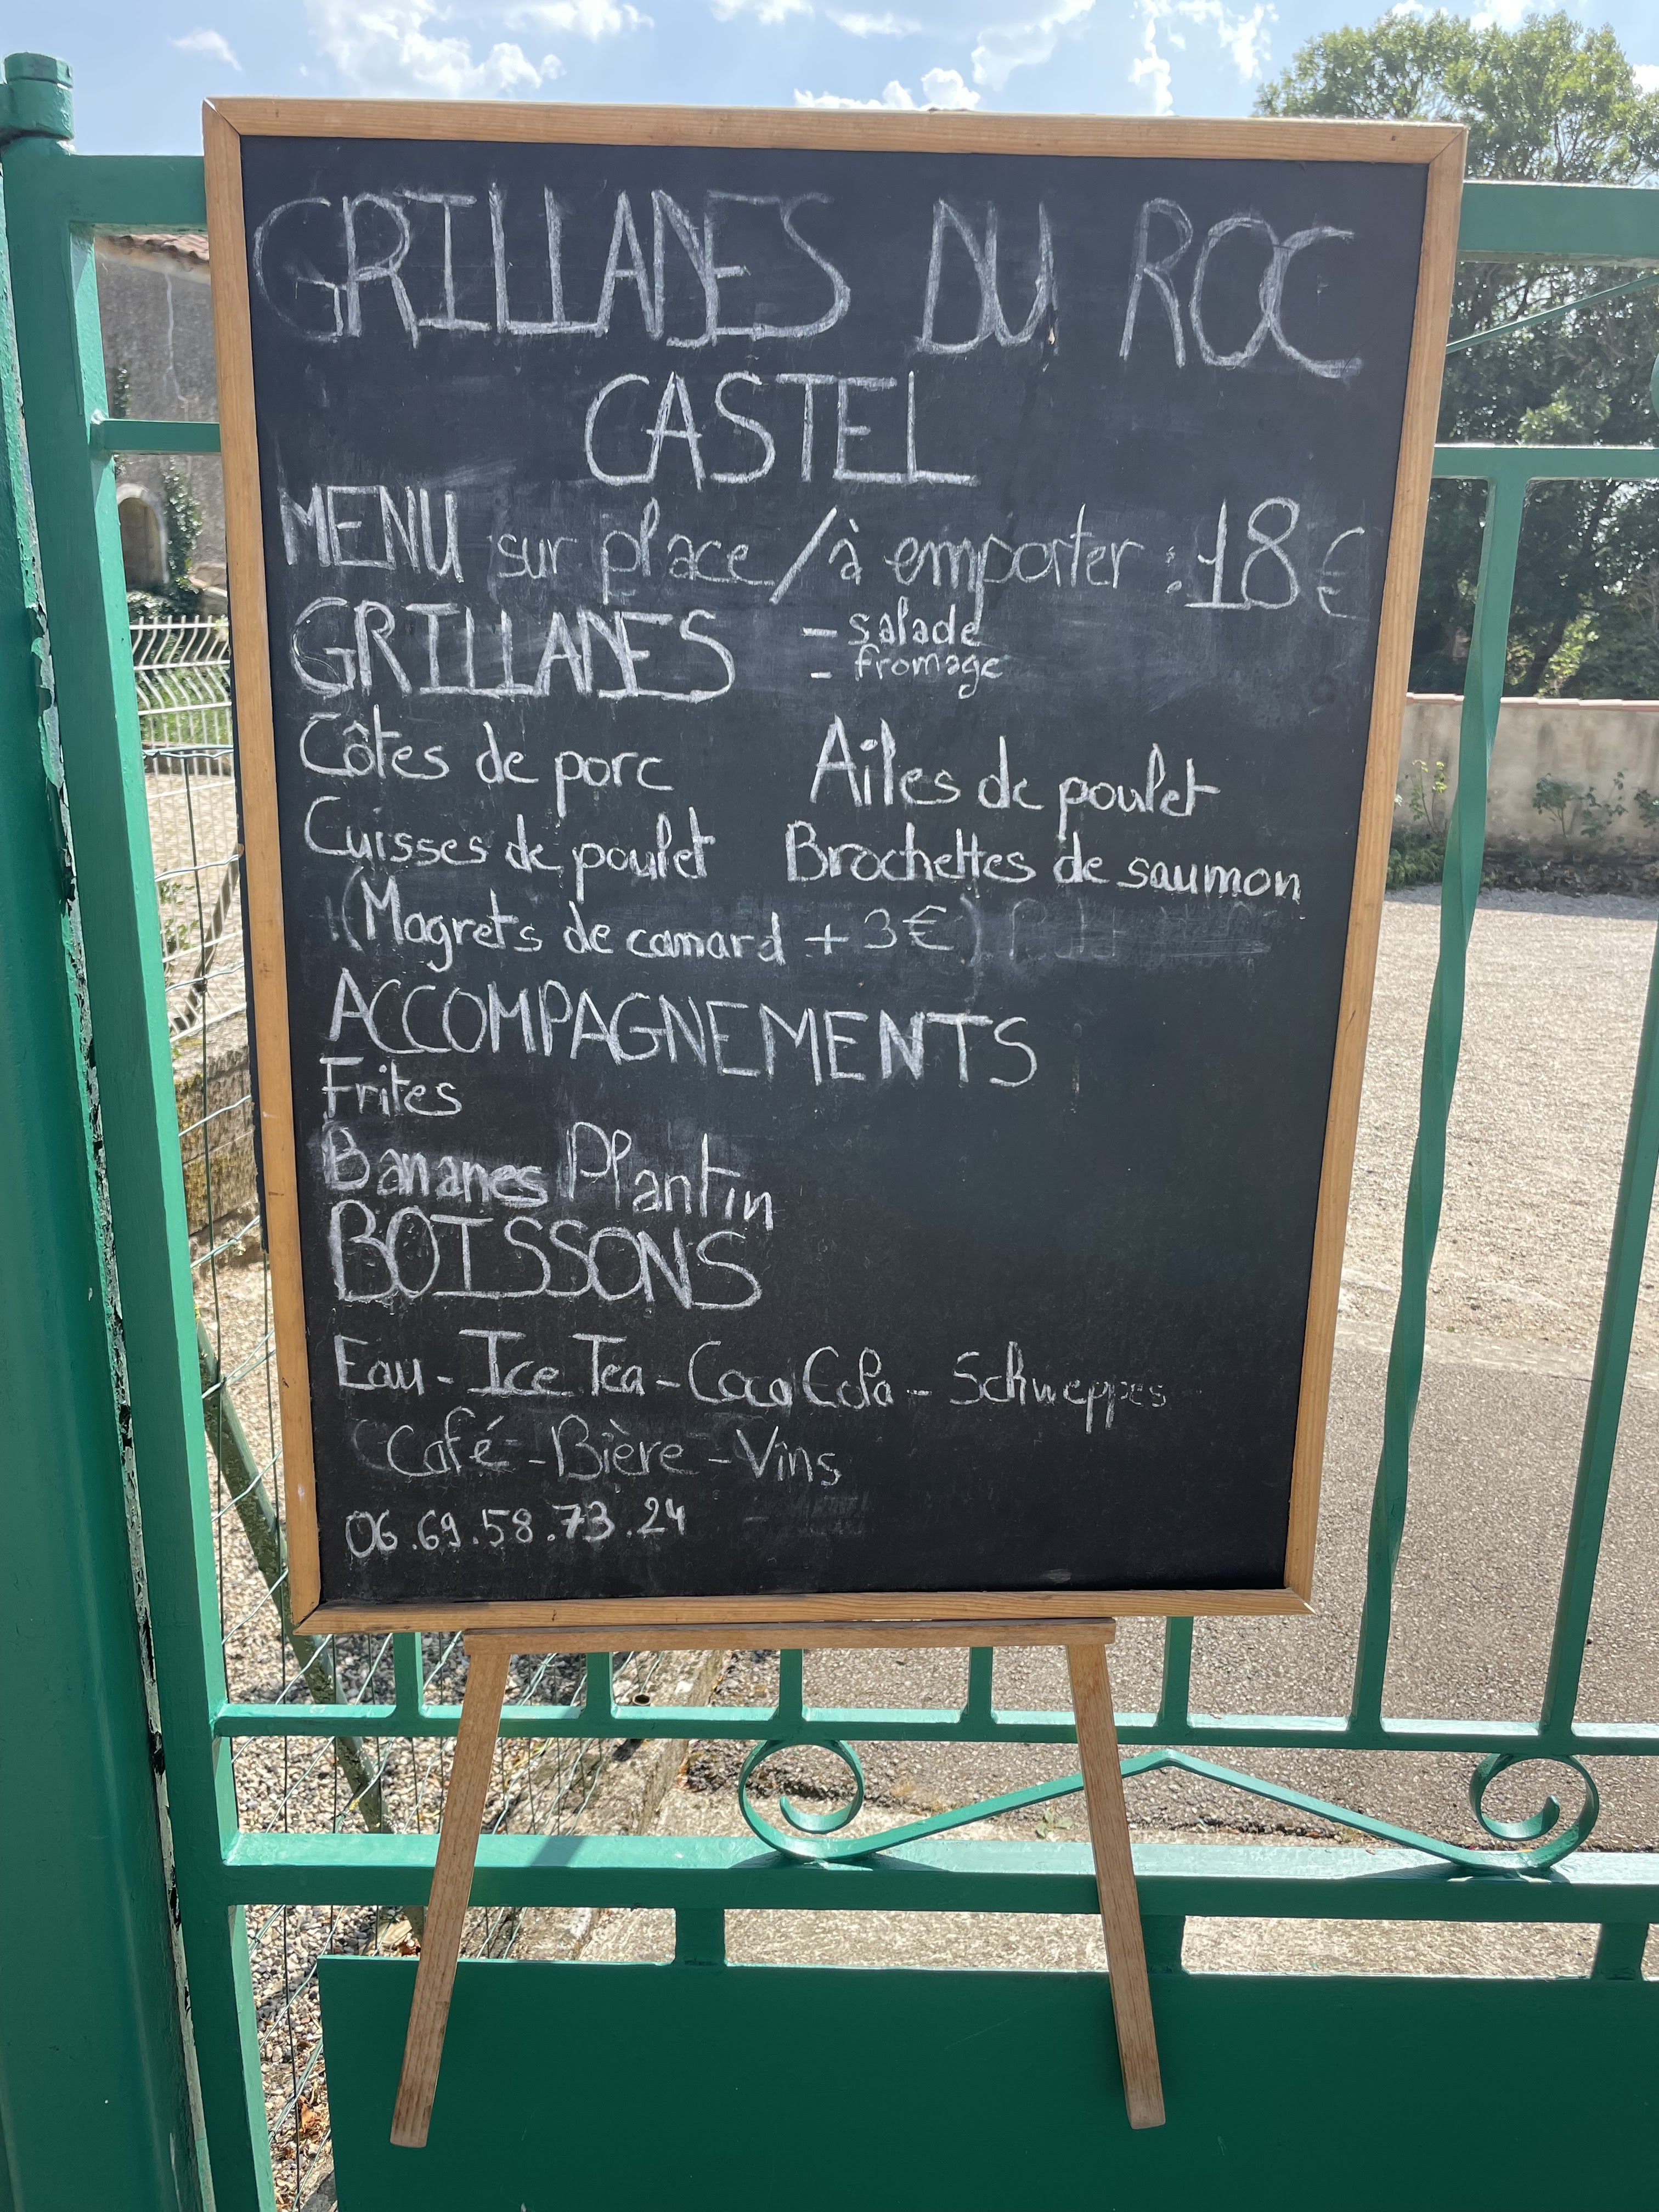 GRILLADES DU ROC
CASTEL
MENU sur place / à emporter : 18€
GRILLADES - salade
- fromage
Côtes de porc Ailes de poulet
Cuisses de poulet Brochettes de saumon
(Magrets de canard + 3€)
ACCOMPAGNEMENTS
Frites
Bananes Plantin
BOISSONS
Eau - Ice Tea - Coca Cola - Schweppes
Café - Bière - Vins
06.69.58.73.24